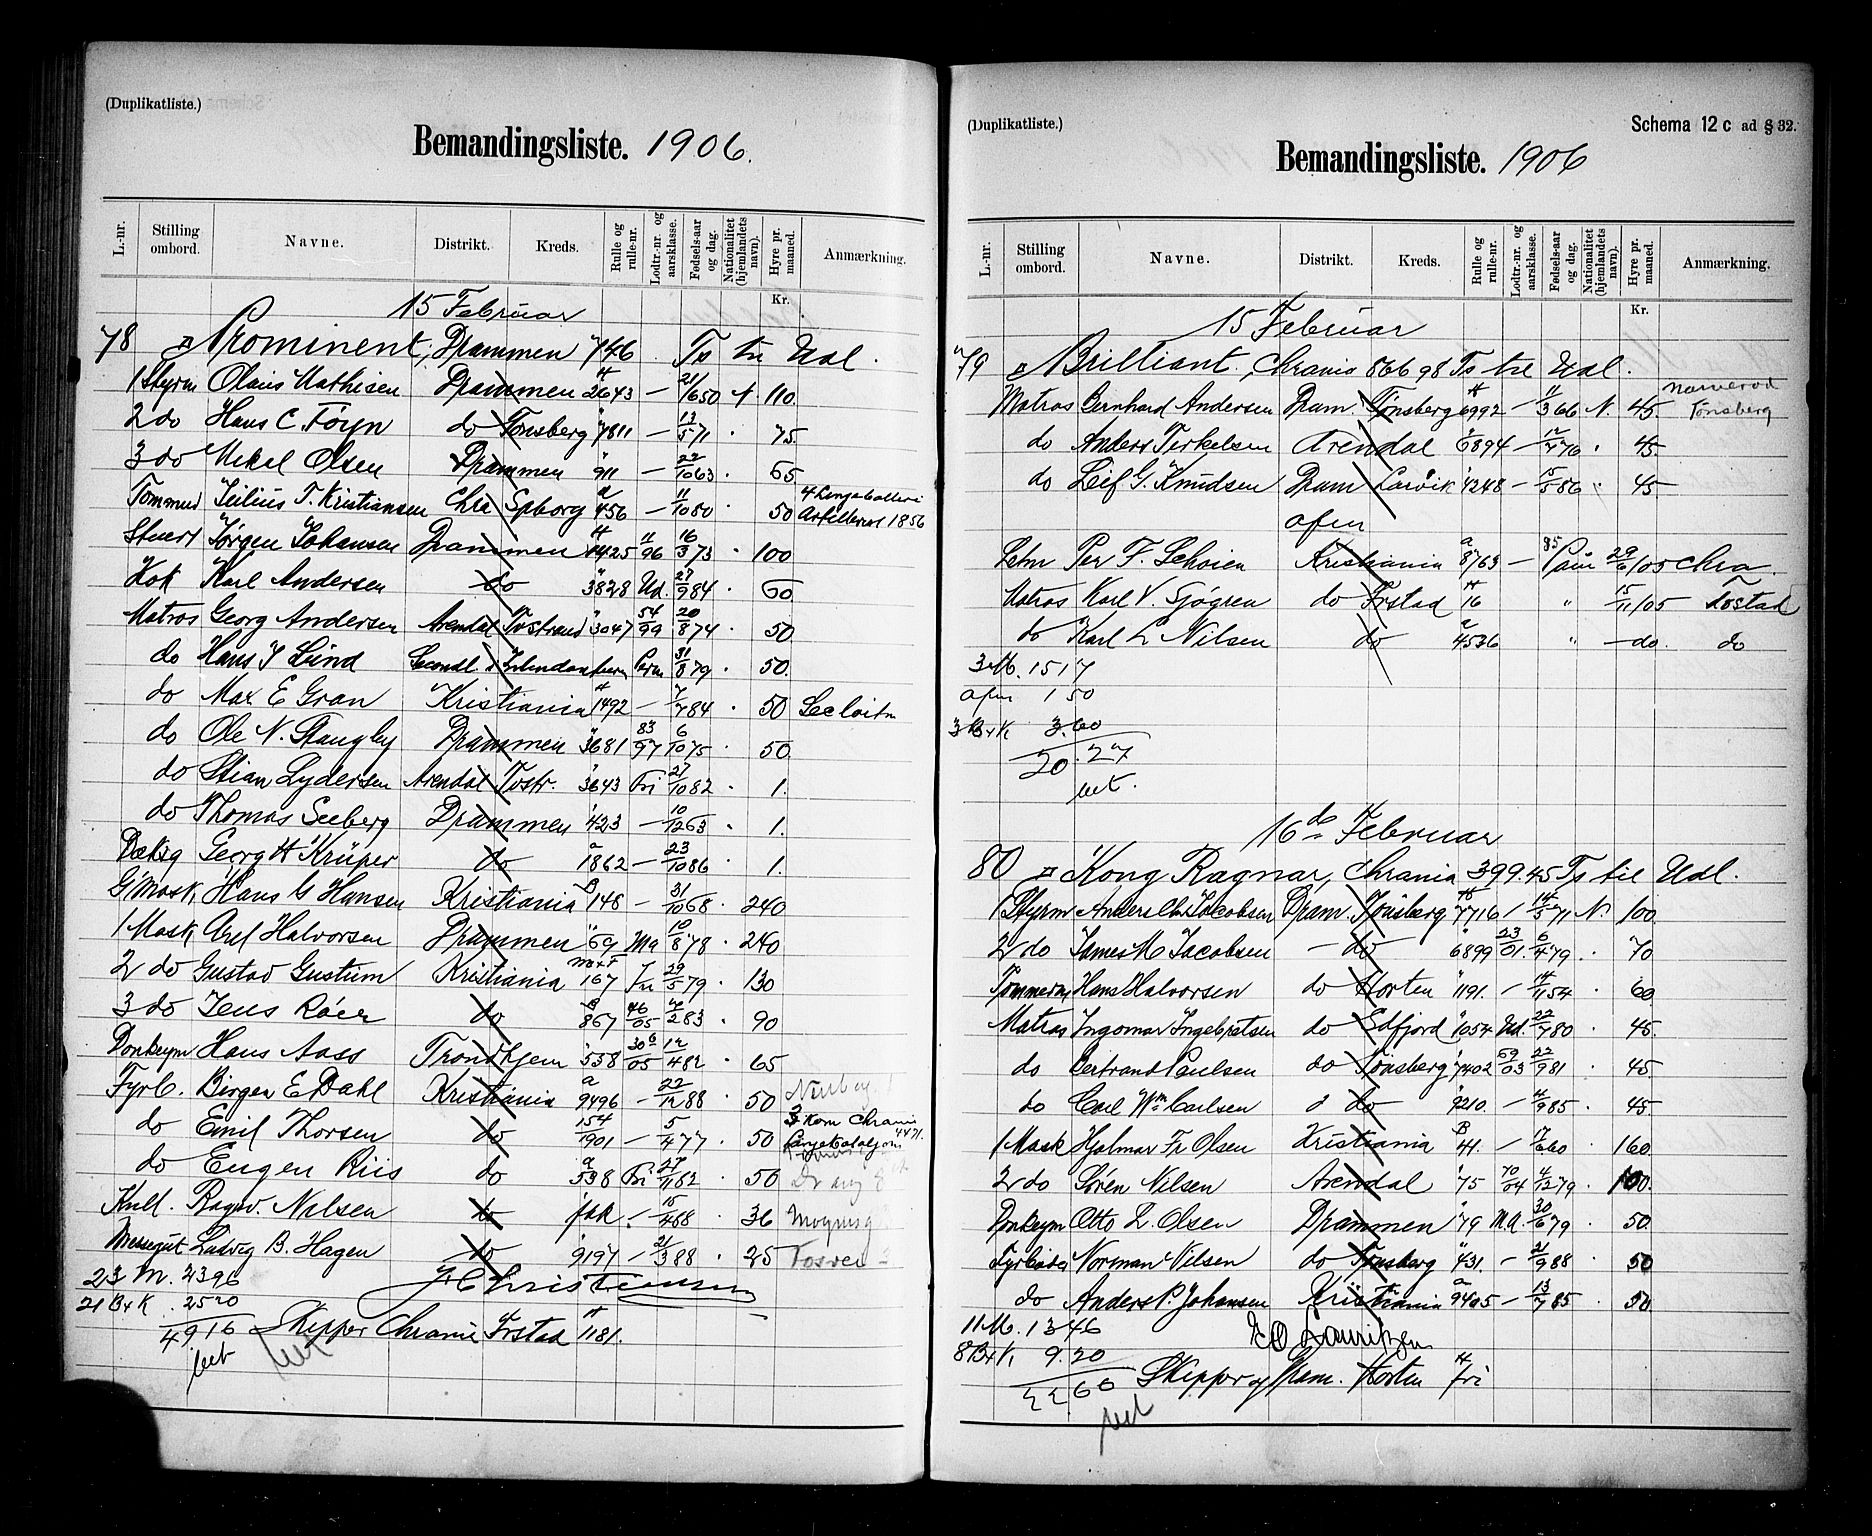 (Duplikatliste.)
Bemandingsliste. 1906.
L.-nr. Stilling ombord. Navne. Distrikt. Kreds. Rulle og rulle-nr. Lodtr.-nr. og aarsklasse. Fødsels-aar og dag. Nationalitet (hjemlandets navn). Hyre pr. maaned. Anmærkning.
Kr.
15 Februar
78 Prominent, Drammen 746 Ts til Udl.
1 Styrm Olaus Mathisen Drammen 2643 — 21/1650 N. 110.
2 do Hans C. Foyn do Tønsberg 7811 — 13/571 75.
3 do Mikal Olsen Drammen 911 — 22/1063 65
Tømmerm Julius T. Kristiansen Chra Spborg 456 — 11/1080 50 Artilleriet 1856
Stuert Jørgen Johansen Drammen 1425 11/96 16/373 100
Kok Karl Andersen do 3828 Ud. 27/984 60
Matros Georg Andersen Arendal Tvstrand 3047 54/99 20/874 50
do Hans J Lund 31/879 50.
do Max E Gran Kristiania 1492 — 7/784 50
do Ole N. Stangby Drammen 3681 83/97 6/1075 50.
do Stian Lydersen Arendal Tvstr. 3643 Fri 27/1082 1.
do Thomas Seeberg Drammen 423 — 10/1263 1.
Dæksg Georg H Krüger do 1862 — 23/1086 1.
Hans G Hansen Kristiania 148 — 31/1068 240
1 Mask Axel Halvorsen Drammen 69 Ma 10/878 240
2 do Gustav Gustum Kristiania 167 Fri 29/579 130
3 do Jens Róer do 867 46/05 7/283 90
Donkeym Hans Aass Trondhjem 538 306/05 12/482 65
Fyrb. Birger E Dahl Kristiania 9496 — 22/1288 50
do Emil Thorsen do 154/1901 — 5/477 50 3 Kom Chrania 4471.
do Eugen Riis do 538 Fri 27/1182 50
Kull. Ragnv. Nilsen do 15/488 36
Messegut Ludvig B. Hagen do 9197 — 21/388 25
23 M. 2396
21 B+K 2520
4916 Skipper Chrania Frstad 1181.
(Duplikatliste.) Schema 12 c ad § 32.
Bemandingsliste. 1906
L.-nr. Stilling ombord. Navne. Distrikt. Kreds. Rulle og rulle-nr. Lodtr.-nr. og aarsklasse. Fødsels-aar og dag. Nationalitet (hjemlandets navn). Hyre pr. maaned. Anmærkning.
Kr.
15 Februar
79 Brilliant, Chrania 866 98 Ts til Udl.
Matros Bernhard Andersen Dram. Tønsberg 6992 — 11/366 N. 45. Tønsberg
do Anders Terkelsen Arendal 6894 — 12/776 45.
do Leif G. Knudsen Dram Larvik 4248 — 15/586 45.
afm
Per F. Schoien Kristiania 8763 — 29/6/05 Chra.
Matros Karl V. Sjögren do Frstad 16 15/11/05 Frstad
do Karl L Nilsen do 4536 — do. do
3 M. 15 17
afm 1 50
3 B+K 3.60
20.27
16de Februar
80 Kong Ragnar, Chrania 399.45 Ts til Udl.
1 Styrm Anders Chr. Jacobsen Dram. Tønsberg 7716 14/571 N. 100
2 do James M Jacobsen — do 6899 23/01 6/479 70
Tømmerm Hans Halvorsen do Horten 1191. — 14/1154 60
Matros Ingomar Ingebretsen do Edfjord 1054 Ud. 22/780 45.
do Bertrand Paulsen do Tønsberg 7402 59/03 22/981 45.
do Carl Wm Carlsen do 9210. — 4/985 45
1 Mask Hjalmar Fr. Olsen Kristiania 41. — 17/660 160
2 do Søren Nilsen Arendal 75 70/04 4/1279 100.
Donkeym Otto L. Olsen Drammen 79 Ma. 30/679 50.
Fyrbøder Norman Nilsen do Tønsberg 431. — 21/988 50
do Anders P. Johansen Kristiania 9405 — 13/785 50
11 M. 13 46
8 B+K 9.20
22 66 Skipper Dram. Horten fri